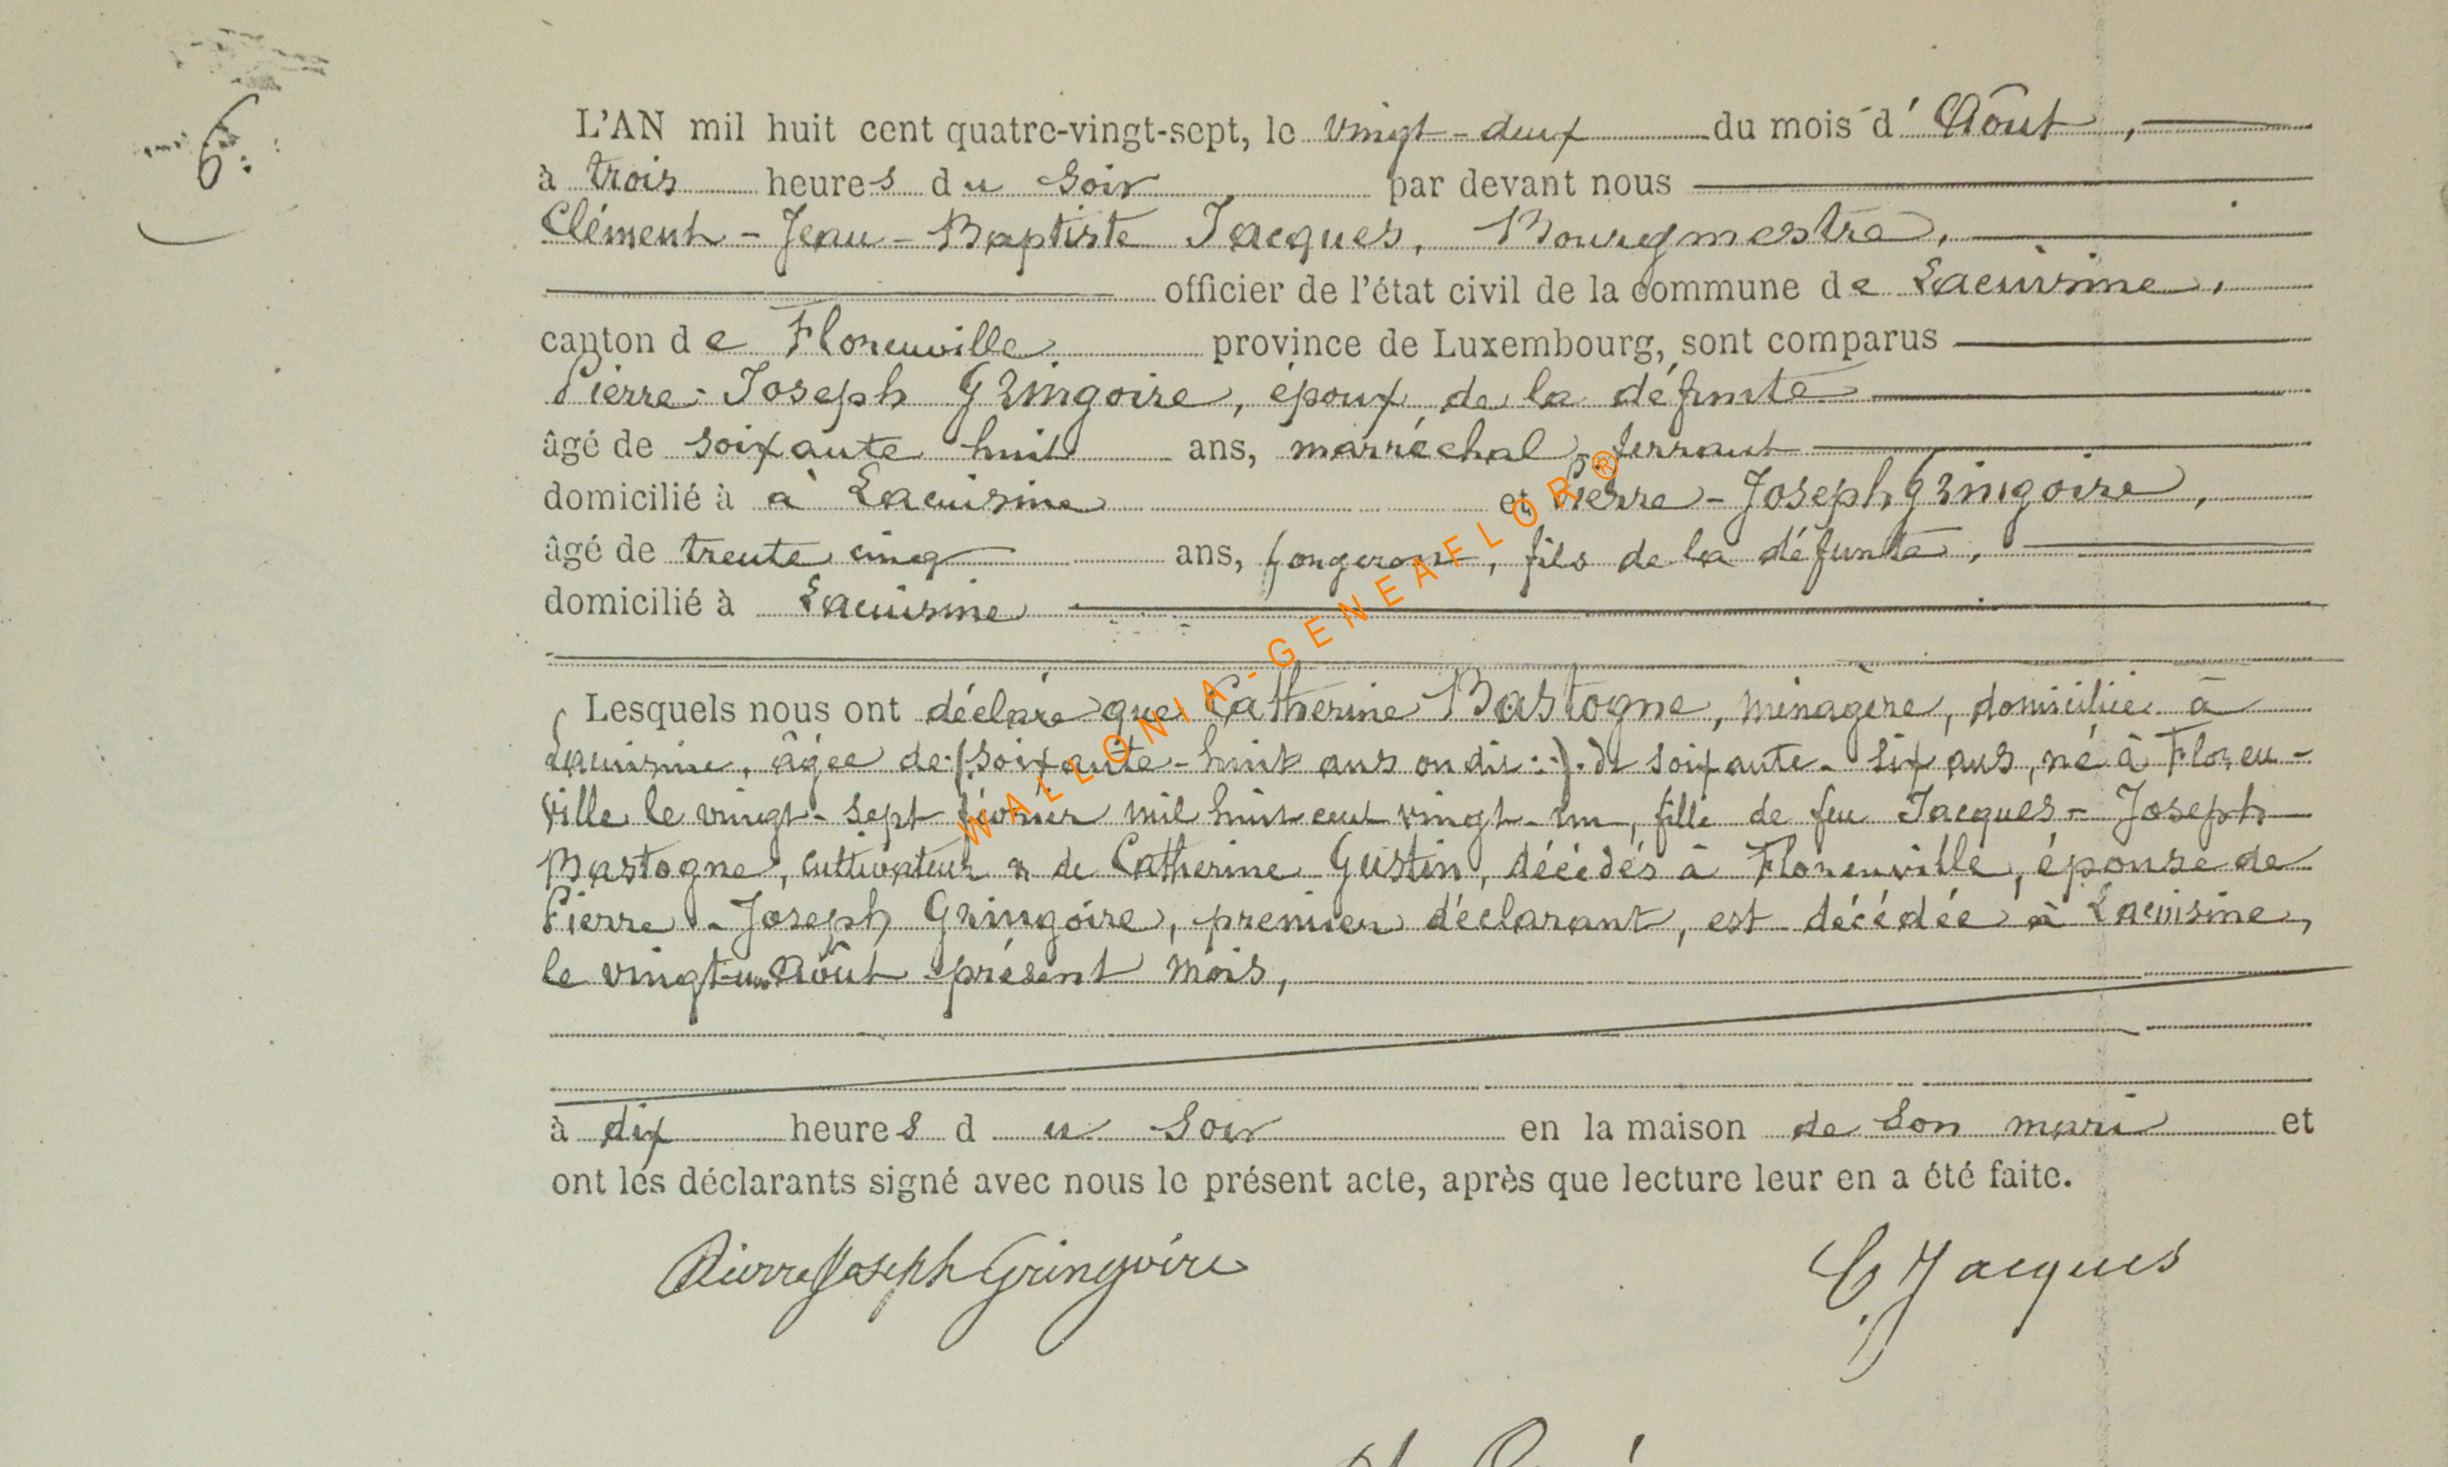 6.
L'AN mil huit cent quatre-vingt-sept, le vingt-deux du mois d'Aôut,
à trois heures du Soir par devant nous
Clément-Jean-Baptiste Jacques, Bourgmestre,
officier de l'état civil de la commune de Lacuisine,
canton de Florenville province de Luxembourg, sont comparus
Pierre-Joseph Gringoire, époux de la défunte
âgé de soixante huit ans, marréchal, ferrant
domicilié à à Lacuisine et Pierre-Joseph Gringoire,
âgé de trente cinq ans, forgeron, fils de la défunte,
domicilié à Lacuisine
Lesquels nous ont déclaré que Catherine Bastogne, ménagère, domiciliée à
Lacuisine, âgée de (soixante-huit ans on dit:) de soixante-six ans, né à Floren-
ville le vingt-sept février mil huit cent vingt-un, fille de feu Jacques-Joseph
Bastogne, cultivateur & de Catherine Gustin, décédés à Florenville, épouse de
Pierre-Joseph Gringoire, premier déclarant, est décédée à Lacuisine,
le vingt-un Aôut présent mois,
à dix heures du Soir en la maison de son mari et
ont les déclarants signé avec nous le présent acte, après que lecture leur en a été faite.
Pierre Joseph Gringoire C. Jacques
WALLONIA-GENEAFLOR®